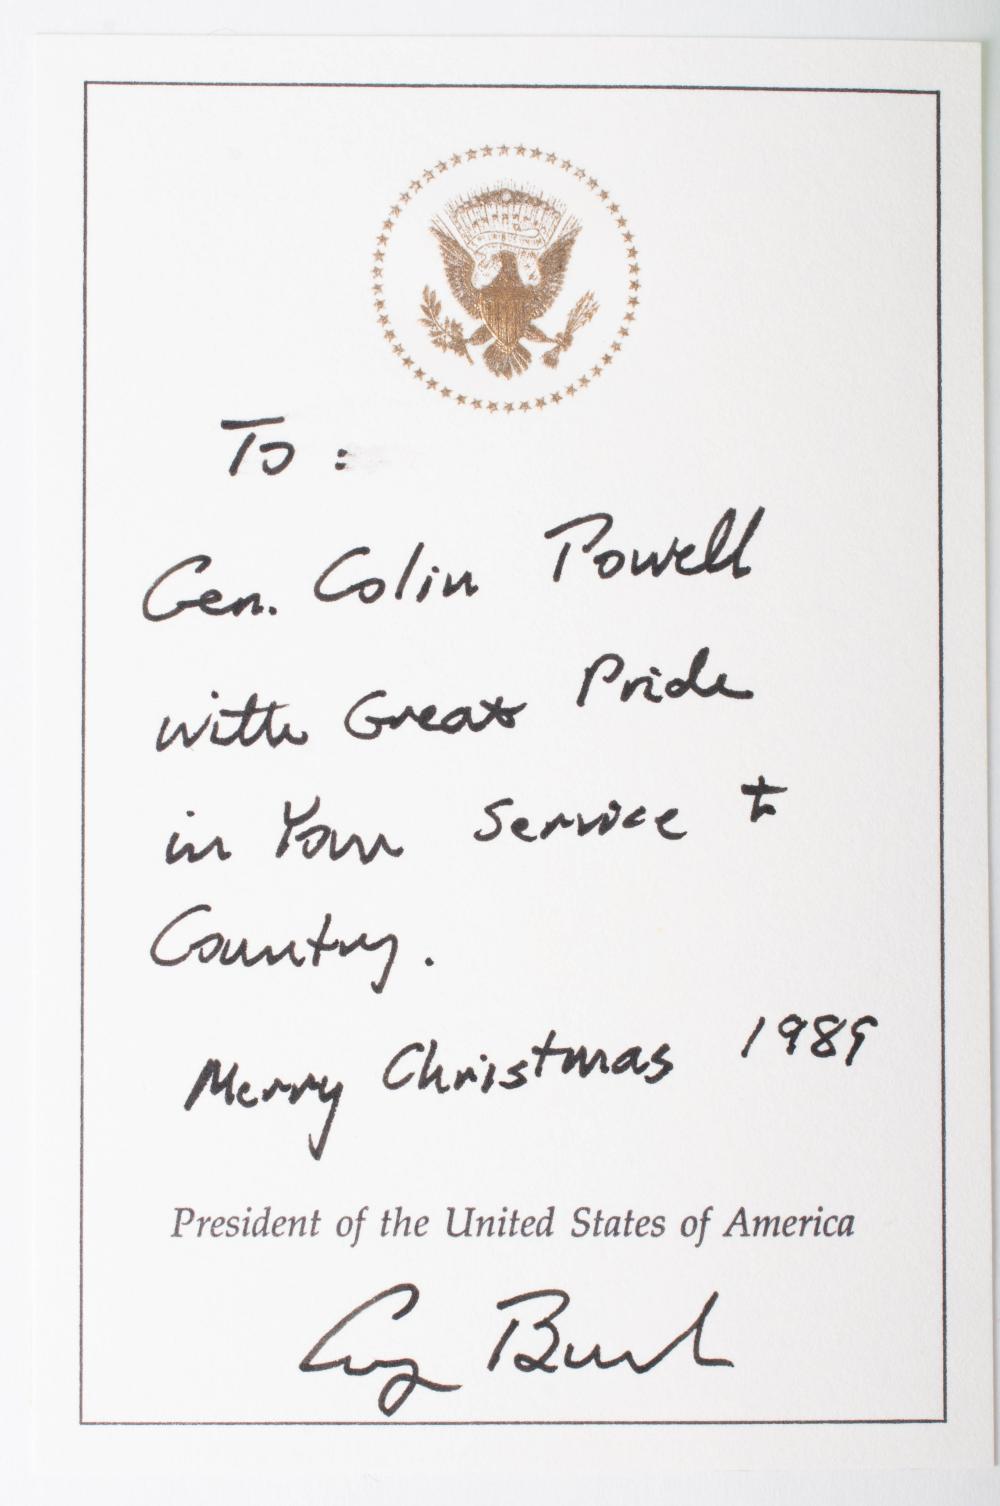 To :
Gen. Colin Powell
with Great Pride
in Your Service to
Country.
Merry Christmas 1989
President of the United States of America
G Bush